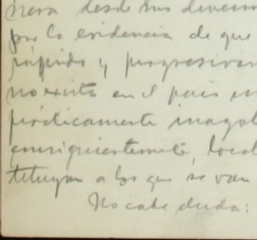 nera desde sus diversos
por la evidencia de que
rápido y progresivam
no exista en el país un
prácticamente inagot
consiguientemente, local
tituyan a los que se van
No cabe duda: